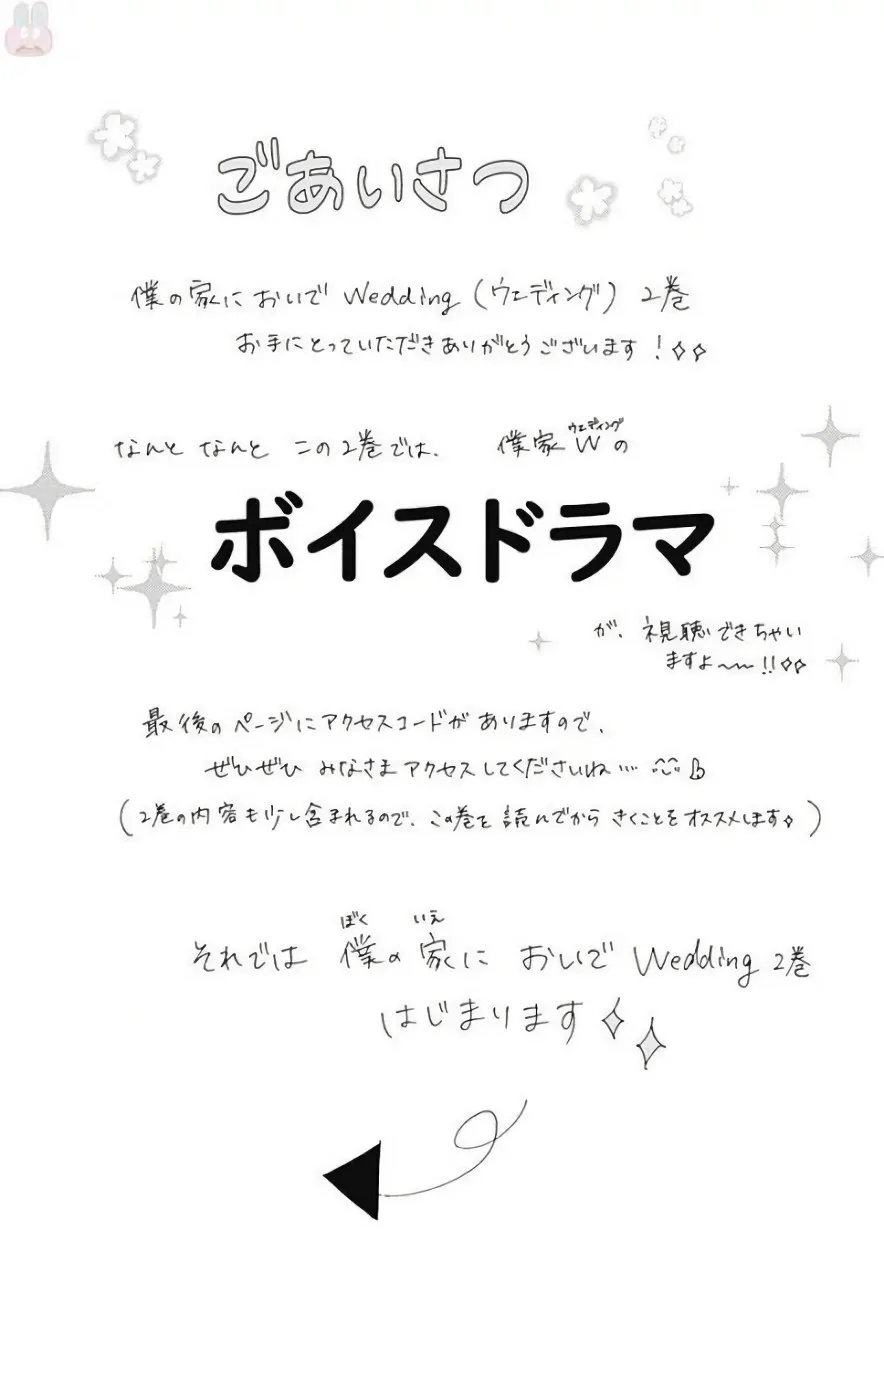 ごあいさつ
僕の家においで Wedding (ウェディング) 2巻
お手にとっていただきありがとうございます！✧✧
なんと なんと この2巻では、 僕家Wの
ウェディング
ボイスドラマ
が、視聴できちゃい
ますよ〜〜!!✧✧
最後のページにアクセスコードがありますので、
ぜひぜひ みなさま アクセスしてくださいね…
(2巻の内容も少し含まれるので、この巻を読んでから きくことをオススメします✧)
ぼく いえ
それでは 僕の家に おいで Wedding 2巻
はじまります✧✧